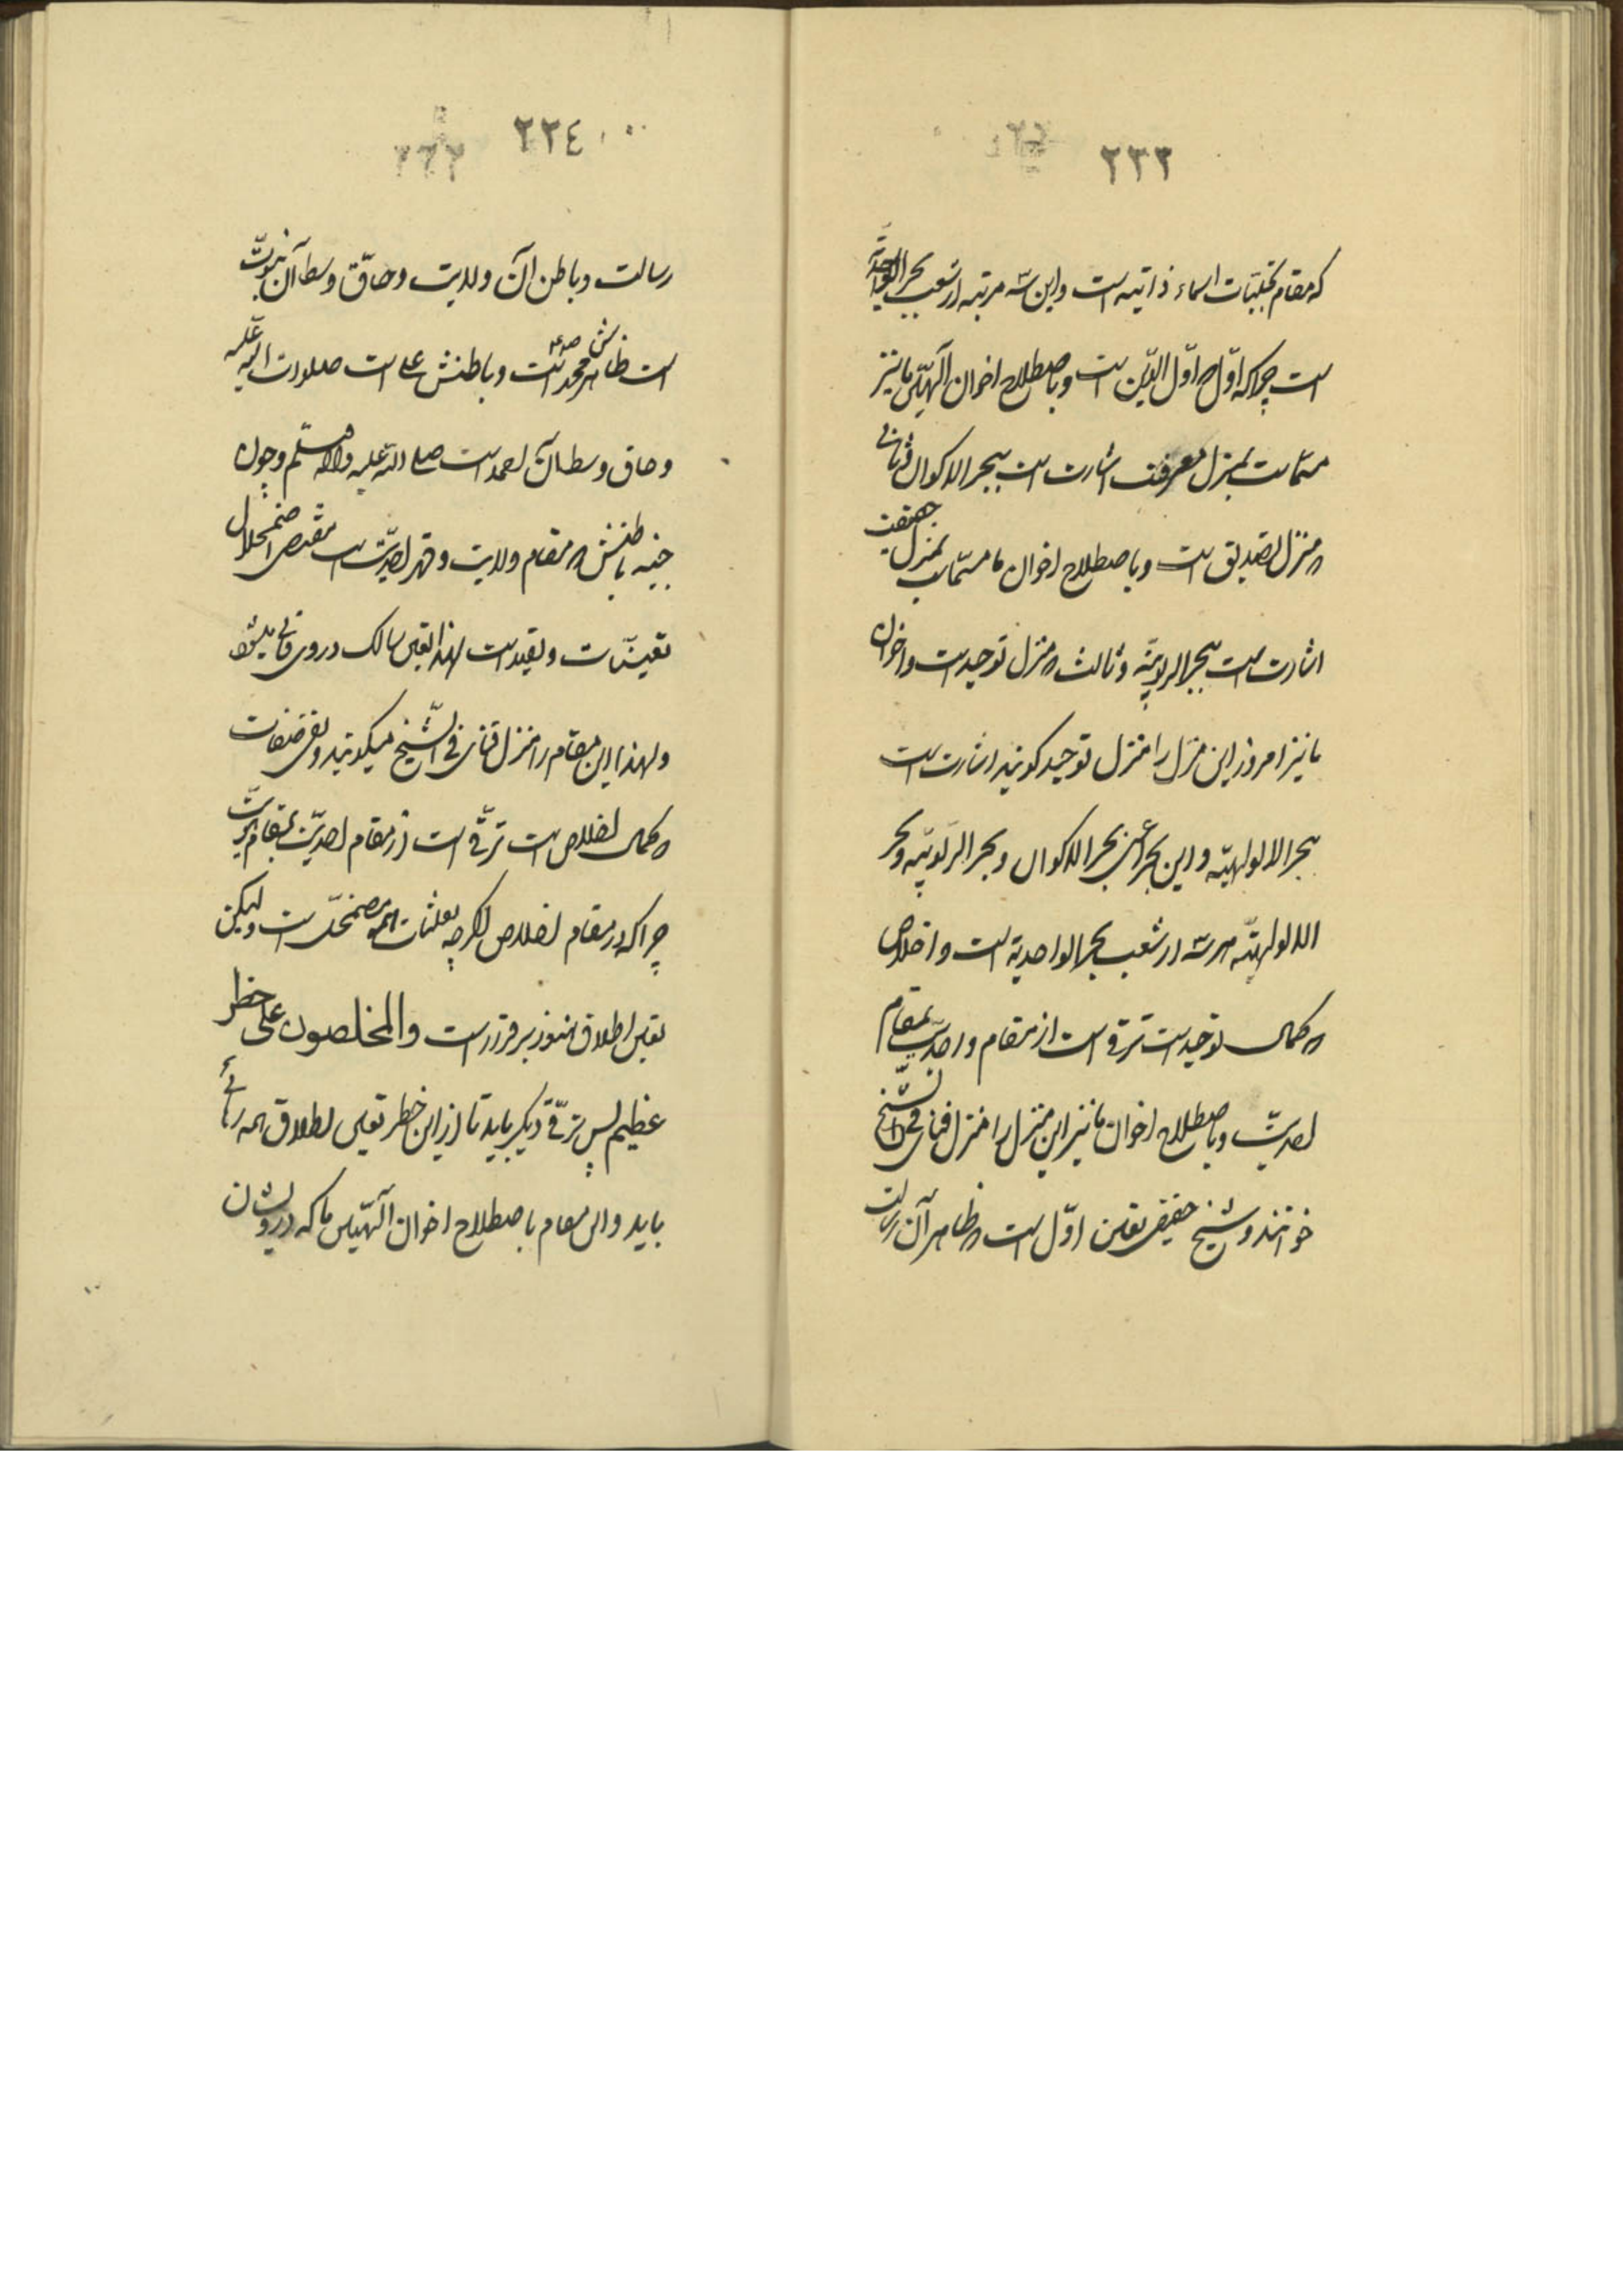 ٢٣٣
که مقام تجلیّات اسماء ذاتیه است و این سه مرتبه از شعب بحر الواحدیّة
است چرا که اوّل که اوّل الدّین است و باصطلاح اخوان الٓهیّین ما نیز
مسمّاست بمنزل معرفت اشارت است ببحر الاکوان و ثانی
که منزل تصدیق است و باصطلاح اخوان ما مسمّاست بمنزل حقیقت
اشارت است ببحر الربوبیّه و ثالث که منزل توحید است و اخوان
ما نیز امروز این منزل را منزل توحید گویند اشارت است
ببحر الالوهیّه و این بحر اعنی بحر الاکوان و بحر الرّبوبیّه و بحر
الالوهیّه هر سه از شعب بحر الواحدیة است و اخلاص
که کمال توحید است ترقی است از مقام واحدیّت بمقام
احدیّت و باصطلاح اخوان ما نیز این منزل را منزل فنای فی الشّیخ
خوانند و شیخ حقیقی تعیّن اوّل است که ظاهر آن رسالت
٢٣٤
رسالت و باطن آن ولایت و حاقّ وسط آن نبوّت
است ظاهرش محمد است و باطنش علی است صلوات الله علیه
و حاق وسط آن احمد است صلی الله علیه و آله و سلّم و چون
جنبه باطنش که مقام ولایت و قهر احدیّت است مقتضی اضمحلال
تعیّنات و تقید است لهذا تعین سالک در وی فانی میشود
و لهذا این مقام را منزل فنای فی الشّیخ میگویند و نفی صفات
که کمال اخلاص است ترقّی است از مقام احدیّت بمقام هویّت
چرا که در مقام اخلاص اگرچه تعیّنات همه مضمحلّ است ولیکن
تعیّن اطلاق هنوز برقرار است والمخلصون علی خطر
عظیم پس ترقّی دیگر باید تا از این خطر تعین اطلاق هم رهائی
یابد و این مقام باصطلاح اخوان الٓهیّین ما که درویشان